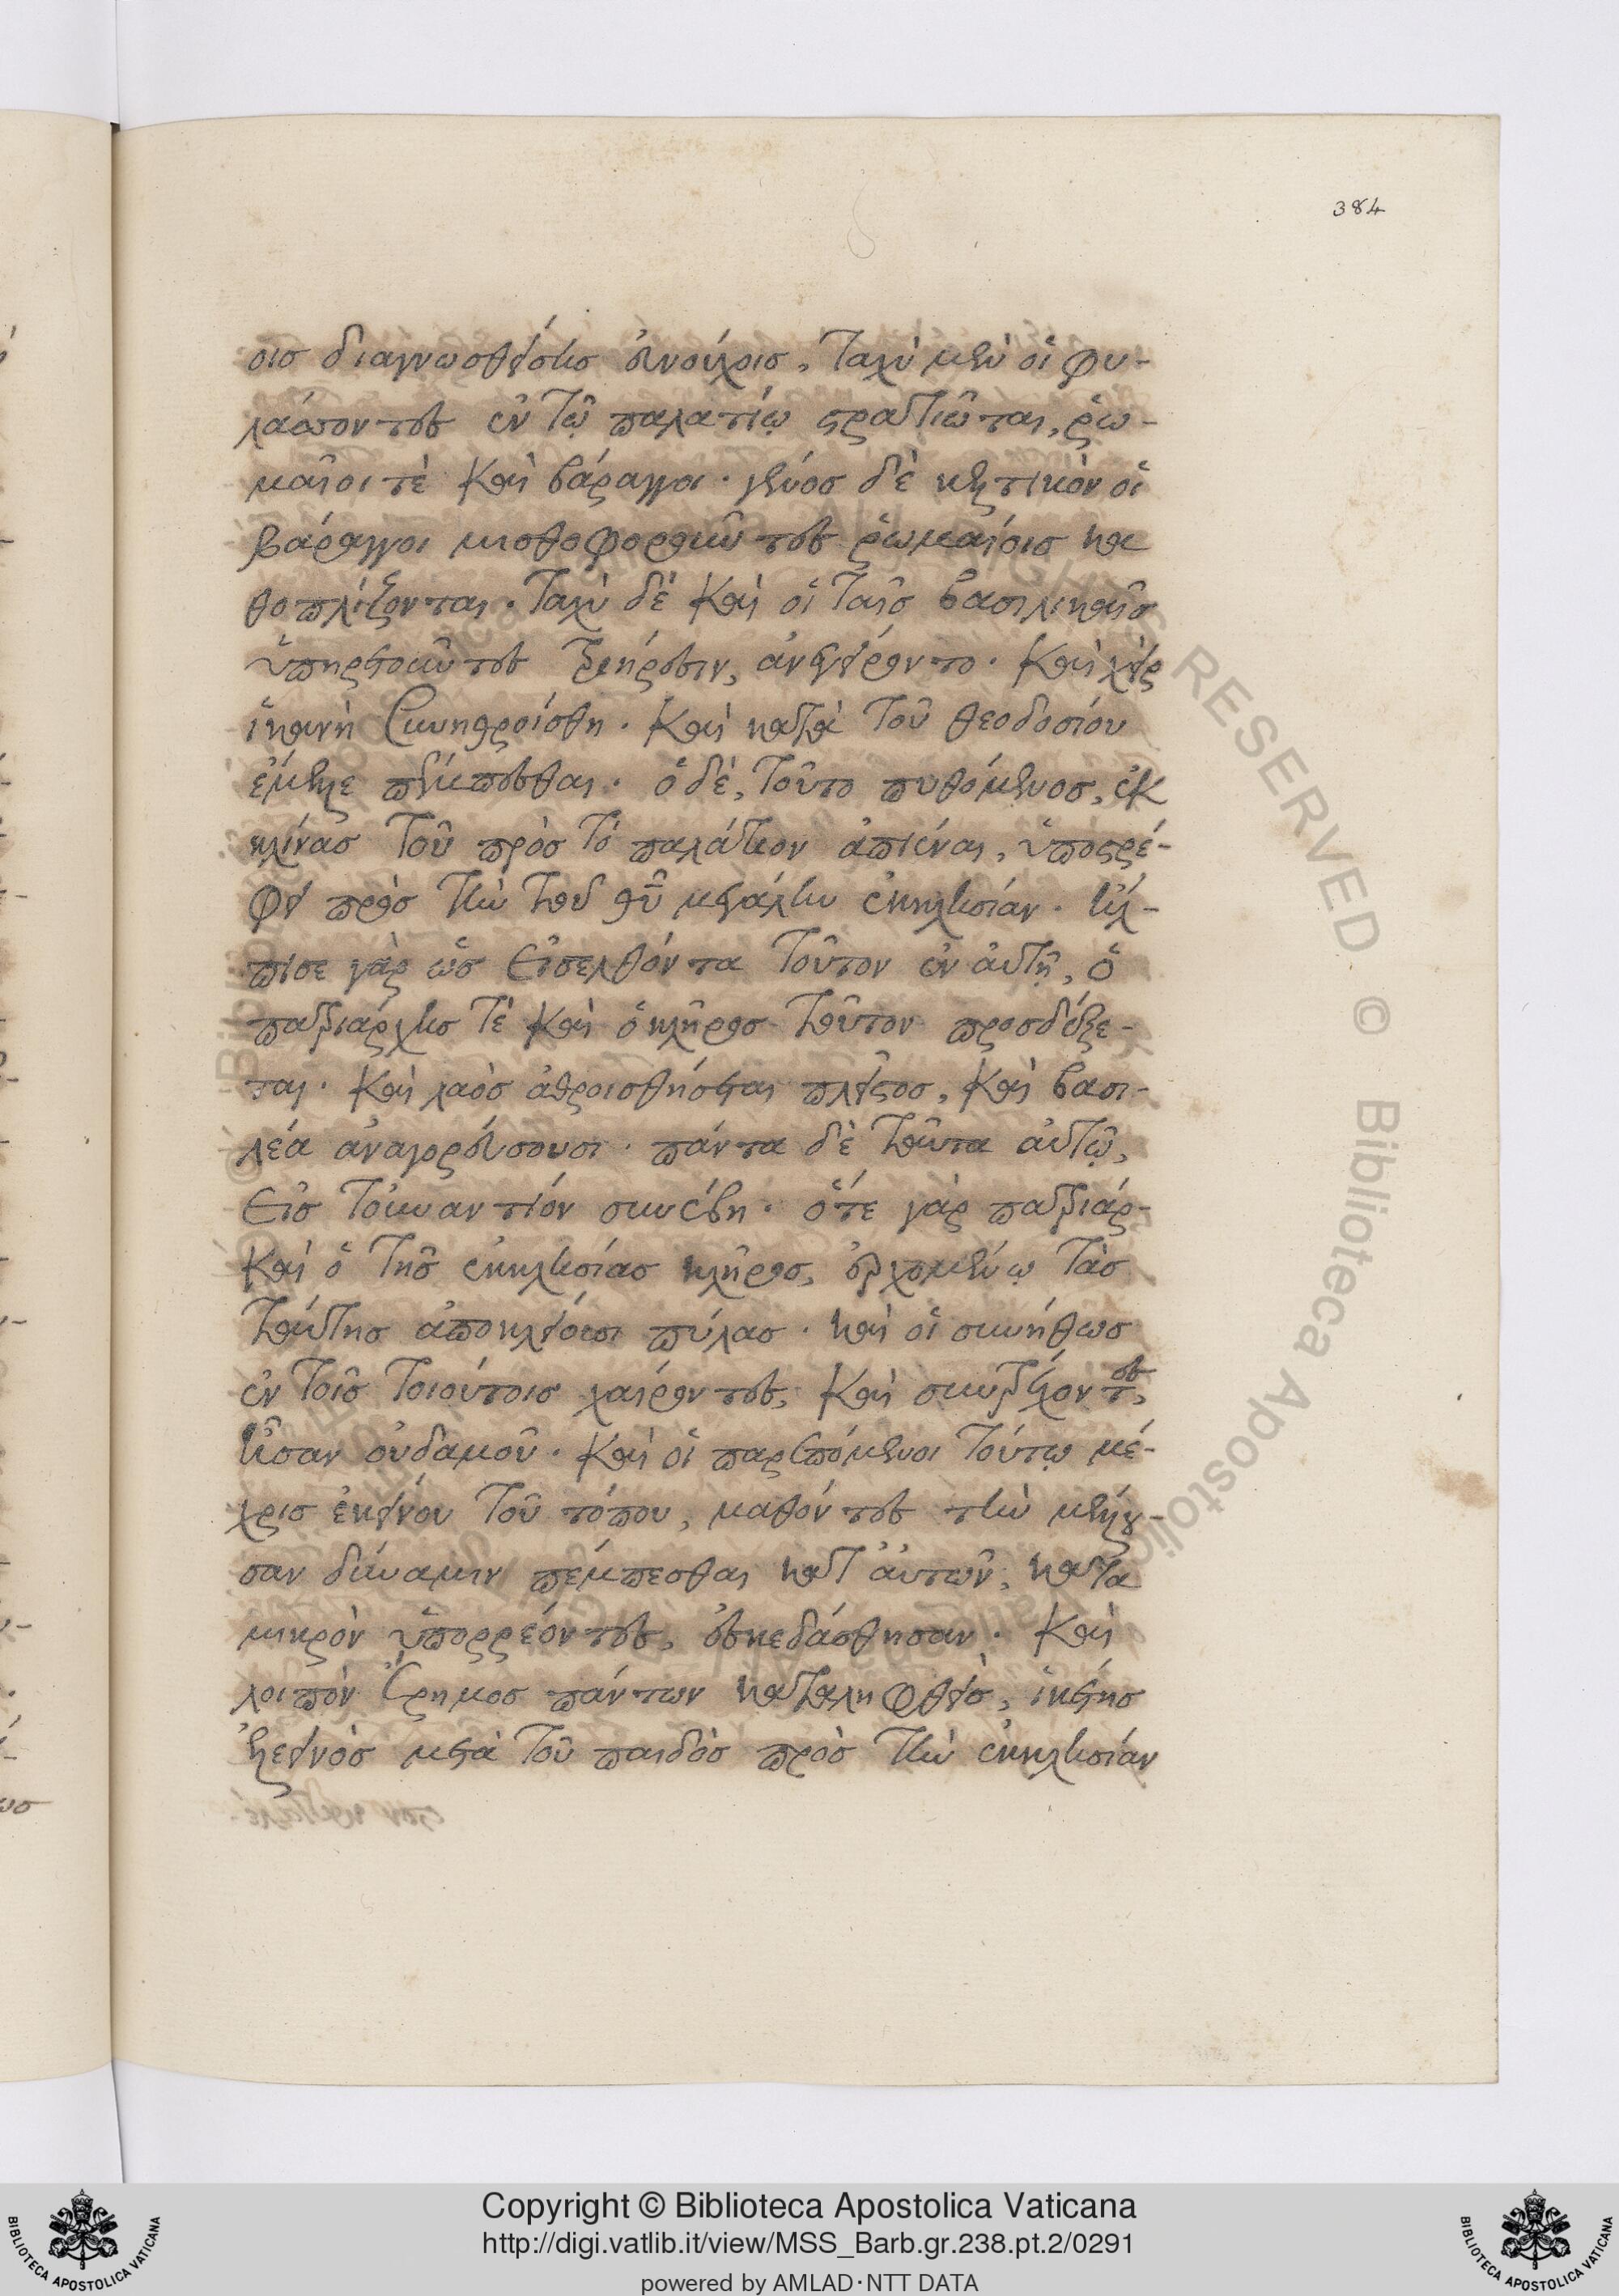 384
οις διαγνωσθείσης εὐνούχοις, ταχὺ μὲν οἱ φυ-
λάττοντες ἐν τῷ παλατίῳ στρατιῶται, ῥω-
μαῖοι τὲ καὶ βάραγγοι. γένος δὲ κελτικὸν οἱ
βάραγγοι μισθοφοροῦντες ῥωμαίοις κα
θοπλίζονται. ταχὺ δὲ καὶ οἱ ταῖς βασιλικαῖς
ὑπηρετοῦντες τριήρεσιν, ἀνηγείροντο. καὶ χεὶρ
ἱκανὴ συνηθροίσθη. καὶ κατὰ τοῦ θεοδοσίου
ἔμελλε πέμπεσθαι. ὁ δὲ, τοῦτο πυθόμενος, ἐκ
κλίνας τοῦ πρὸς τὸ παλάτιον ἀπιέναι, ὑποστρέ-
φει πρὸς τὴν τοῦ θῦ μεγάλην ἐκκλησίαν. ἤλ-
πισε γὰρ ὡς εἰσελθόντα τοῦτον ἐν ἀυτῇ, ὁ
πατριάρχης τὲ καὶ ὁ κλῆρος τοῦτον προσδέξε-
ται. καὶ λαὸς ἀθροισθήσεται πλεῖστος, καὶ βασι-
λέα ἀναγορεύσουσι. πάντα δὲ ταῦτα ἀυτῷ,
εἰς τοὐναντίον συνέβη. ὅτε γὰρ πατριάρ-
καὶ ὁ τῆς ἐκκλησίας κλῆρος, ἐρχομένῳ τὰς
ταύτης ἀποκλείουσι πύλας. καὶ οἱ συνήθως
ἐν τοῖς τοιούτοις χαίροντες, καὶ συντρέχοντες,
ἦσαν οὐδαμοῦ. καὶ οἱ παρεπόμενοι τούτῳ μέ-
χρις ἐκείνου τοῦ τόπου, μαθόντες τὴν μέλλου-
σαν δύναμιν πέμπεσθαι κατ ἀυτῶν, κατὰ
μικρὸν ὑπορρέοντες, ἐσκεδάσθησαν. καὶ
λοιπὸν ἔρημος πάντων καταλειφθεὶς, ἱκέτης
ἐλεεινὸς μετὰ τοῦ παιδὸς πρὸς τὴν ἐκκλησίαν
Copyright © Biblioteca Apostolica Vaticana
http://digi.vatlib.it/view/MSS_Barb.gr.238.pt.2/0291
powered by AMLAD·NTT DATA
BIBLIOTECA APOSTOLICA VATICANA
BIBLIOTECA APOSTOLICA VATICANA